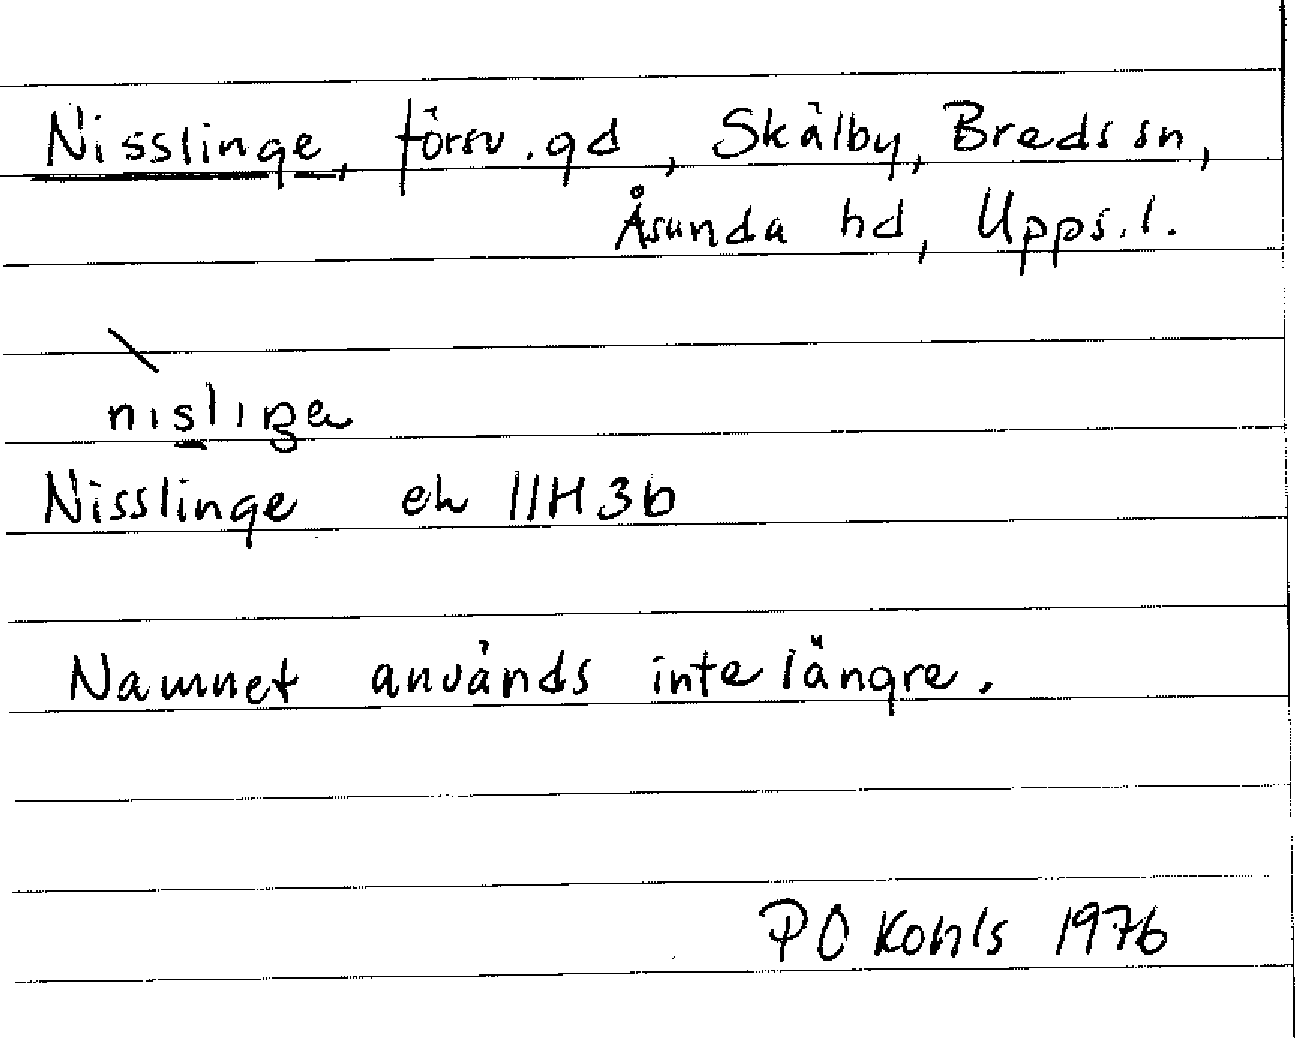 Nisslinge, försv. gd, Skälby, Breds sn,
Åsunda hd, Upps. l.
nisliŋa
Nisslinge ek 11H3b
Namnet används inte längre.
PO Kohls 1976